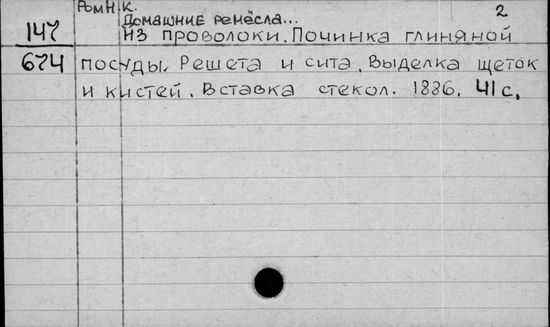 Ромн.К.
2
Домашние ремёсла...
147
из проволоки. Починка глиняной
674
посуды. Решета и сита. Выделка щеток
и кистей. Вставка стекол. 1886. 41 с.